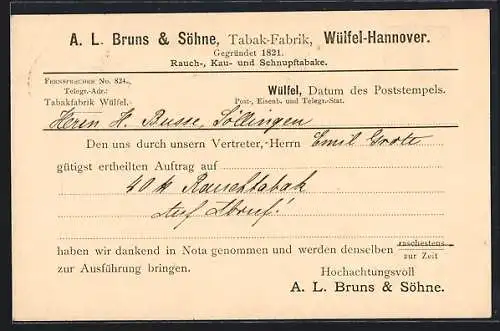 A. L. Bruns & Söhne, Tabak-Fabrik, Wülfel-Hannover.
Gegründet 1821.
Rauch-, Kau- und Schnupftabake.
Fernsprecher No. 824.
Telegr.-Adr.:
Tabakfabrik Wülfel.
Wülfel, Datum des Poststempels.
Post-, Eisenb. und Telegr.-Stat.
Herrn H. Busse, Söllingen
Den uns durch unsern Vertreter, Herrn Emil Grote
gütigst ertheilten Auftrag auf
40 k Rauchtabak
Auf Abruf!
haben wir dankend in Nota genommen und werden denselben raschestens
zur Zeit
zur Ausführung bringen.
Hochachtungsvoll
A. L. Bruns & Söhne.